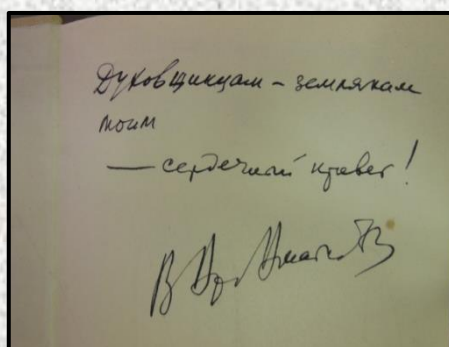 Духовщинцам – землякам
моим
— сердечный привет!
В